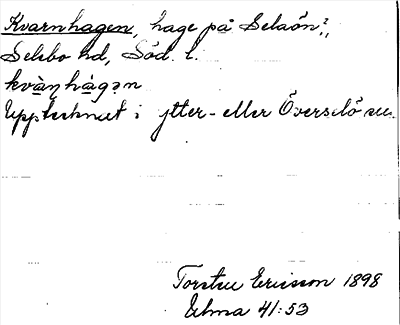 Kvarnhagen, hage på Selaön?,
Selebo hd, Söd. l.
kvàɳhágən
Upptecknat i ytter- eller Överselö sn.
Torsten Ericsson 1898
Ulma 41:53